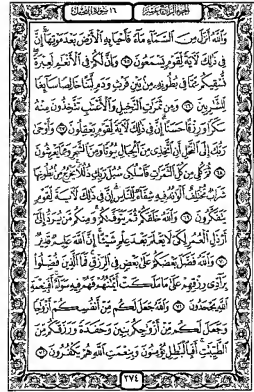 الجزء الرابع عشر
١٦ سورة النحل
وَٱللَّهُ أَنزَلَ مِنَ ٱلسَّمَآءِ مَآءً فَأَحْيَا بِهِ ٱلْأَرْضَ بَعْدَ مَوْتِهَآ إِنَّ
فِى ذَٰلِكَ لَءَايَةً لِّقَوْمٍ يَسْمَعُونَ ٦٥ وَإِنَّ لَكُمْ فِى ٱلْأَنْعَٰمِ لَعِبْرَةً
نُّسْقِيكُم مِّمَّا فِى بُطُونِهِۦ مِنۢ بَيْنِ فَرْثٍ وَدَمٍ لَّبَنًا خَالِصًا سَآئِغًا
لِّلشَّٰرِبِينَ ٦٦ وَمِن ثَمَرَٰتِ ٱلنَّخِيلِ وَٱلْأَعْنَٰبِ تَتَّخِذُونَ مِنْهُ
سَكَرًا وَرِزْقًا حَسَنًا إِنَّ فِى ذَٰلِكَ لَءَايَةً لِّقَوْمٍ يَعْقِلُونَ ٦٧ وَأَوْحَىٰ
رَبُّكَ إِلَى ٱلنَّحْلِ أَنِ ٱتَّخِذِى مِنَ ٱلْجِبَالِ بُيُوتًا وَمِنَ ٱلشَّجَرِ وَمِمَّا يَعْرِشُونَ
٦٨ ثُمَّ كُلِى مِن كُلِّ ٱلثَّمَرَٰتِ فَٱسْلُكِى سُبُلَ رَبِّكِ ذُلُلًا يَخْرُجُ مِنۢ بُطُونِهَا
شَرَابٌ مُّخْتَلِفٌ أَلْوَٰنُهُۥ فِيهِ شِفَآءٌ لِّلنَّاسِ إِنَّ فِى ذَٰلِكَ لَءَايَةً لِّقَوْمٍ
يَتَفَكَّرُونَ ٦٩ وَٱللَّهُ خَلَقَكُمْ ثُمَّ يَتَوَفَّىٰكُمْ وَمِنكُم مَّن يُرَدُّ إِلَىٰٓ
أَرْذَلِ ٱلْعُمُرِ لِكَىْ لَا يَعْلَمَ بَعْدَ عِلْمٍ شَيْـًٔا إِنَّ ٱللَّهَ عَلِيمٌ قَدِيرٌ
٧٠ وَٱللَّهُ فَضَّلَ بَعْضَكُمْ عَلَىٰ بَعْضٍ فِى ٱلرِّزْقِ فَمَا ٱلَّذِينَ فُضِّلُوا۟
بِرَآدِّى رِزْقِهِمْ عَلَىٰ مَا مَلَكَتْ أَيْمَٰنُهُمْ فَهُمْ فِيهِ سَوَآءٌ أَفَبِنِعْمَةِ
ٱللَّهِ يَجْحَدُونَ ٧١ وَٱللَّهُ جَعَلَ لَكُم مِّنْ أَنفُسِكُمْ أَزْوَٰجًا
وَجَعَلَ لَكُم مِّنْ أَزْوَٰجِكُم بَنِينَ وَحَفَدَةً وَرَزَقَكُم مِّنَ
ٱلطَّيِّبَٰتِ أَفَبِٱلْبَٰطِلِ يُؤْمِنُونَ وَبِنِعْمَتِ ٱللَّهِ هُمْ يَكْفُرُونَ ٧٢
٢٧٤